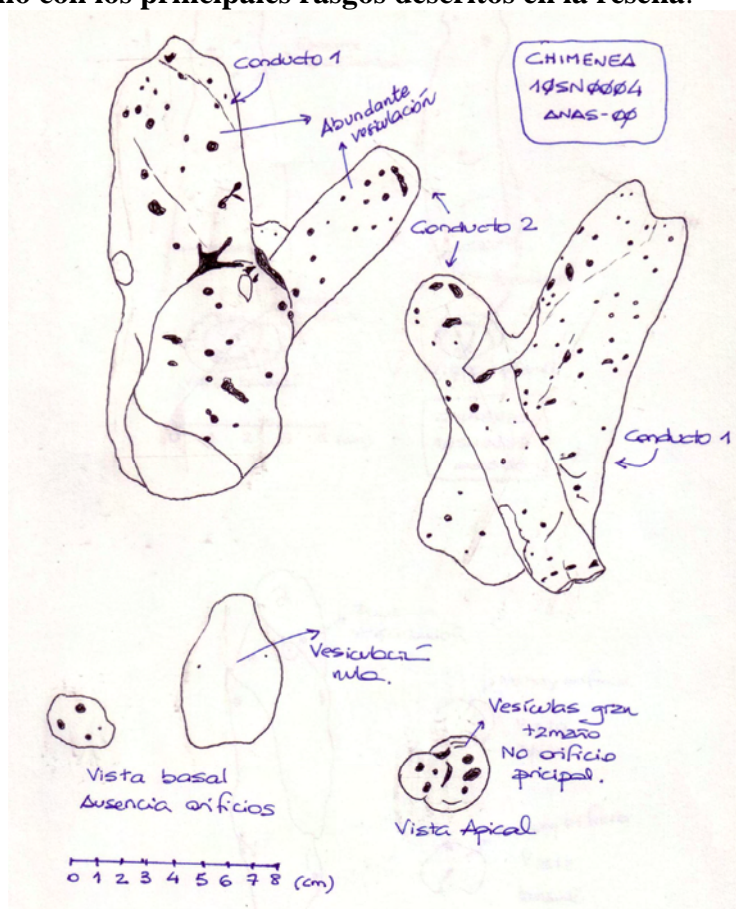 no con los principales rasgos descritos en la reseña:
CHIMENEA
10SN0004
ANAS-00
Conducto 1
Abundante
vesiculación
Conducto 2
Conducto 1
Vesiculación
nula.
Vista basal
Ausencia orificios
Vesículas gran
tamaño
No orificio
pricipal.
Vista Apical
0 1 2 3 4 5 6 7 8 (cm)